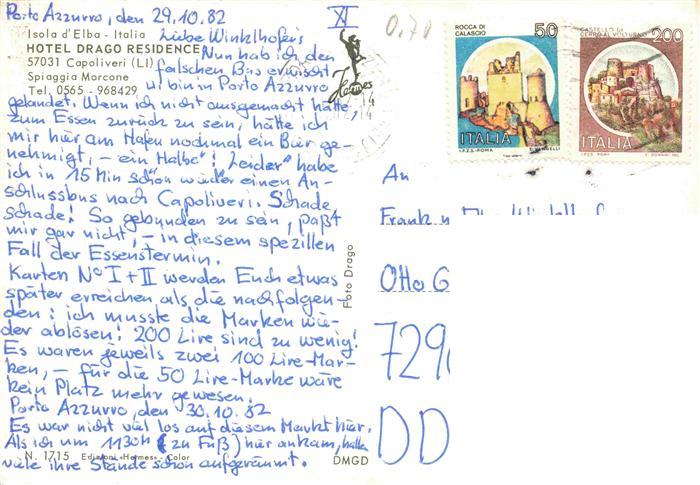 Porto Azzurro, den 29.10.82
XI
0.70
Isola d'Elba - Italia
Liebe Winklhofer's
HOTEL DRAGO RESIDENCE
Nun hab ich den
57031 Capoliveri (LI)
falschen Bus erwischt
Spiaggia Morcone
u. bin in Porto Azzurro
Tel. 0565 - 968429
Hermes
gelandet. Wenn ich nicht ausgemacht hätte,
zum Essen zurück zu sein, hätte ich
mir hier am Hafen nochmal ein Bier ge-
nehmigt, - ein "Halbe"! Leider habe
ich in 15 Min schon wieder einen An-
schlussbus nach Capoliveri. Schade
Schade! So gebunden zu sein, paßt
mir gar nicht, - in diesem spezillen
Fall der Essenstermin.
Karten No I + II werden Euch etwas
später erreichen als die nachfolgen-
den: ich musste die Marken wie-
der ablösen! 200 Lire sind zu wenig!
Es waren jeweils zwei 100 Lire-Mar-
ken, - für die 50 Lire-Marke wäre
kein Platz mehr gewesen.
Porto Azzurro, den 30.10.82
Es war nicht viel los auf diesem Markt hier.
Als ich um 1130h (zu Fuß) hier ankam, hatten
viele ihre Stände schon aufgeräumt.
N. 1715 Edizioni «Hermes» - Color
DMGD
Foto Drago
ROCCA DI
CALASCIO
50
ITALIA
I.P.Z.S. - ROMA E. VANGELLI
CASTELLO DI
CERRO AL VOLTURNO
200
ITALIA
I.P.Z.S. ROMA
An
Otto G
729
DD